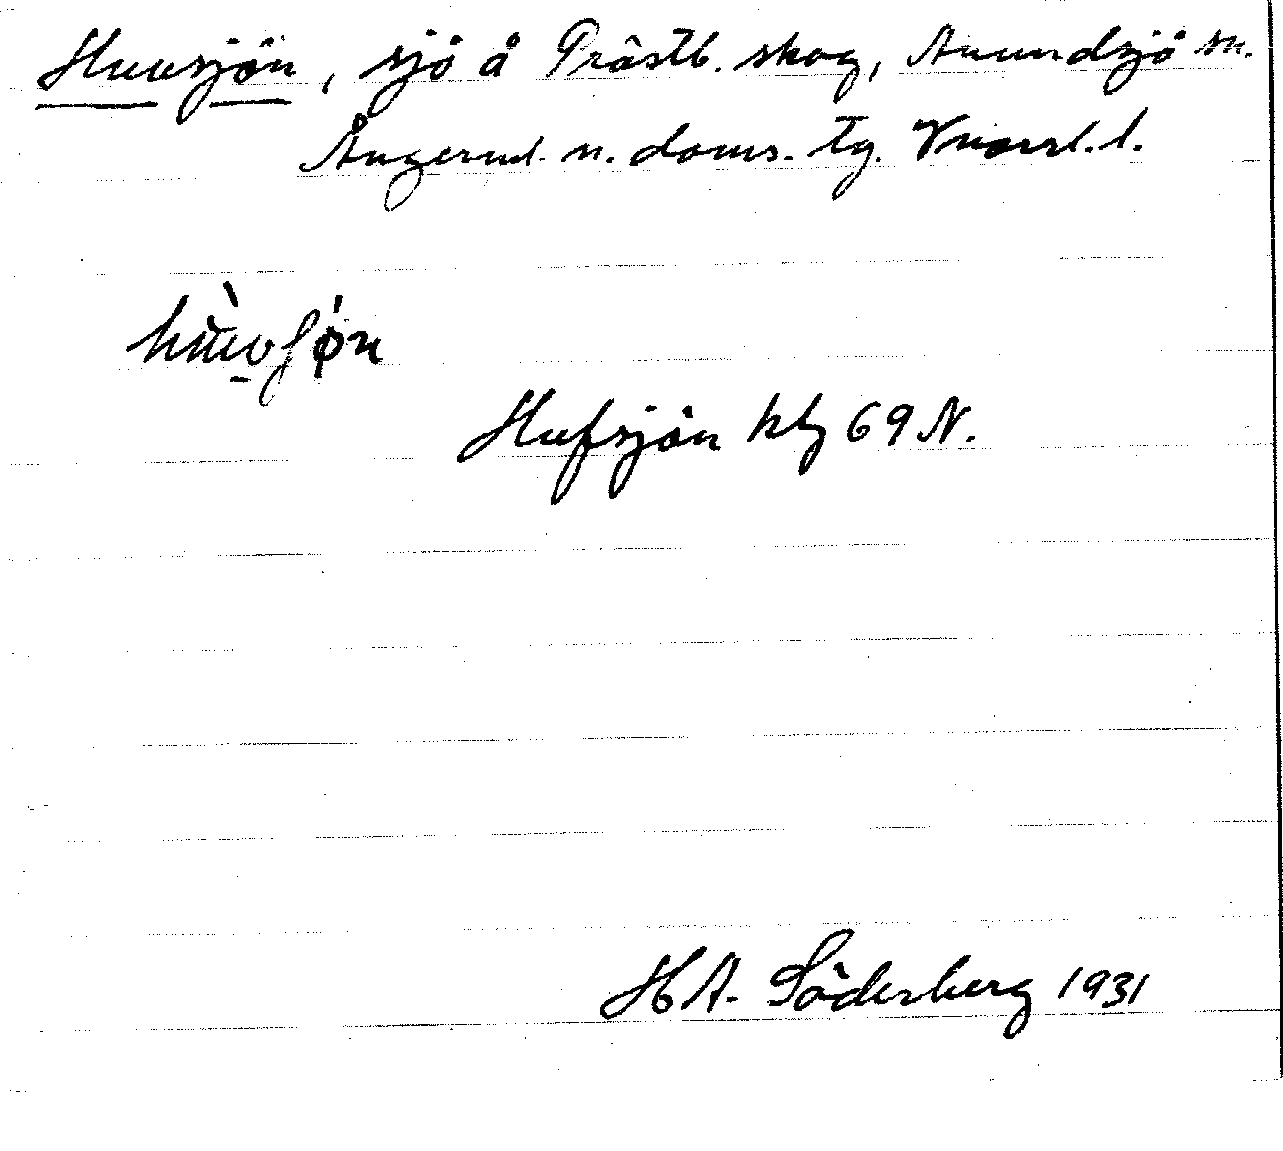 Huvsjön, sjö å Prästb. skog, Anundsjö sn.
Ångerml. n. doms. tg. Vnorrl. l.
Hufsjön 69 N.
H A. Söderberg 1931